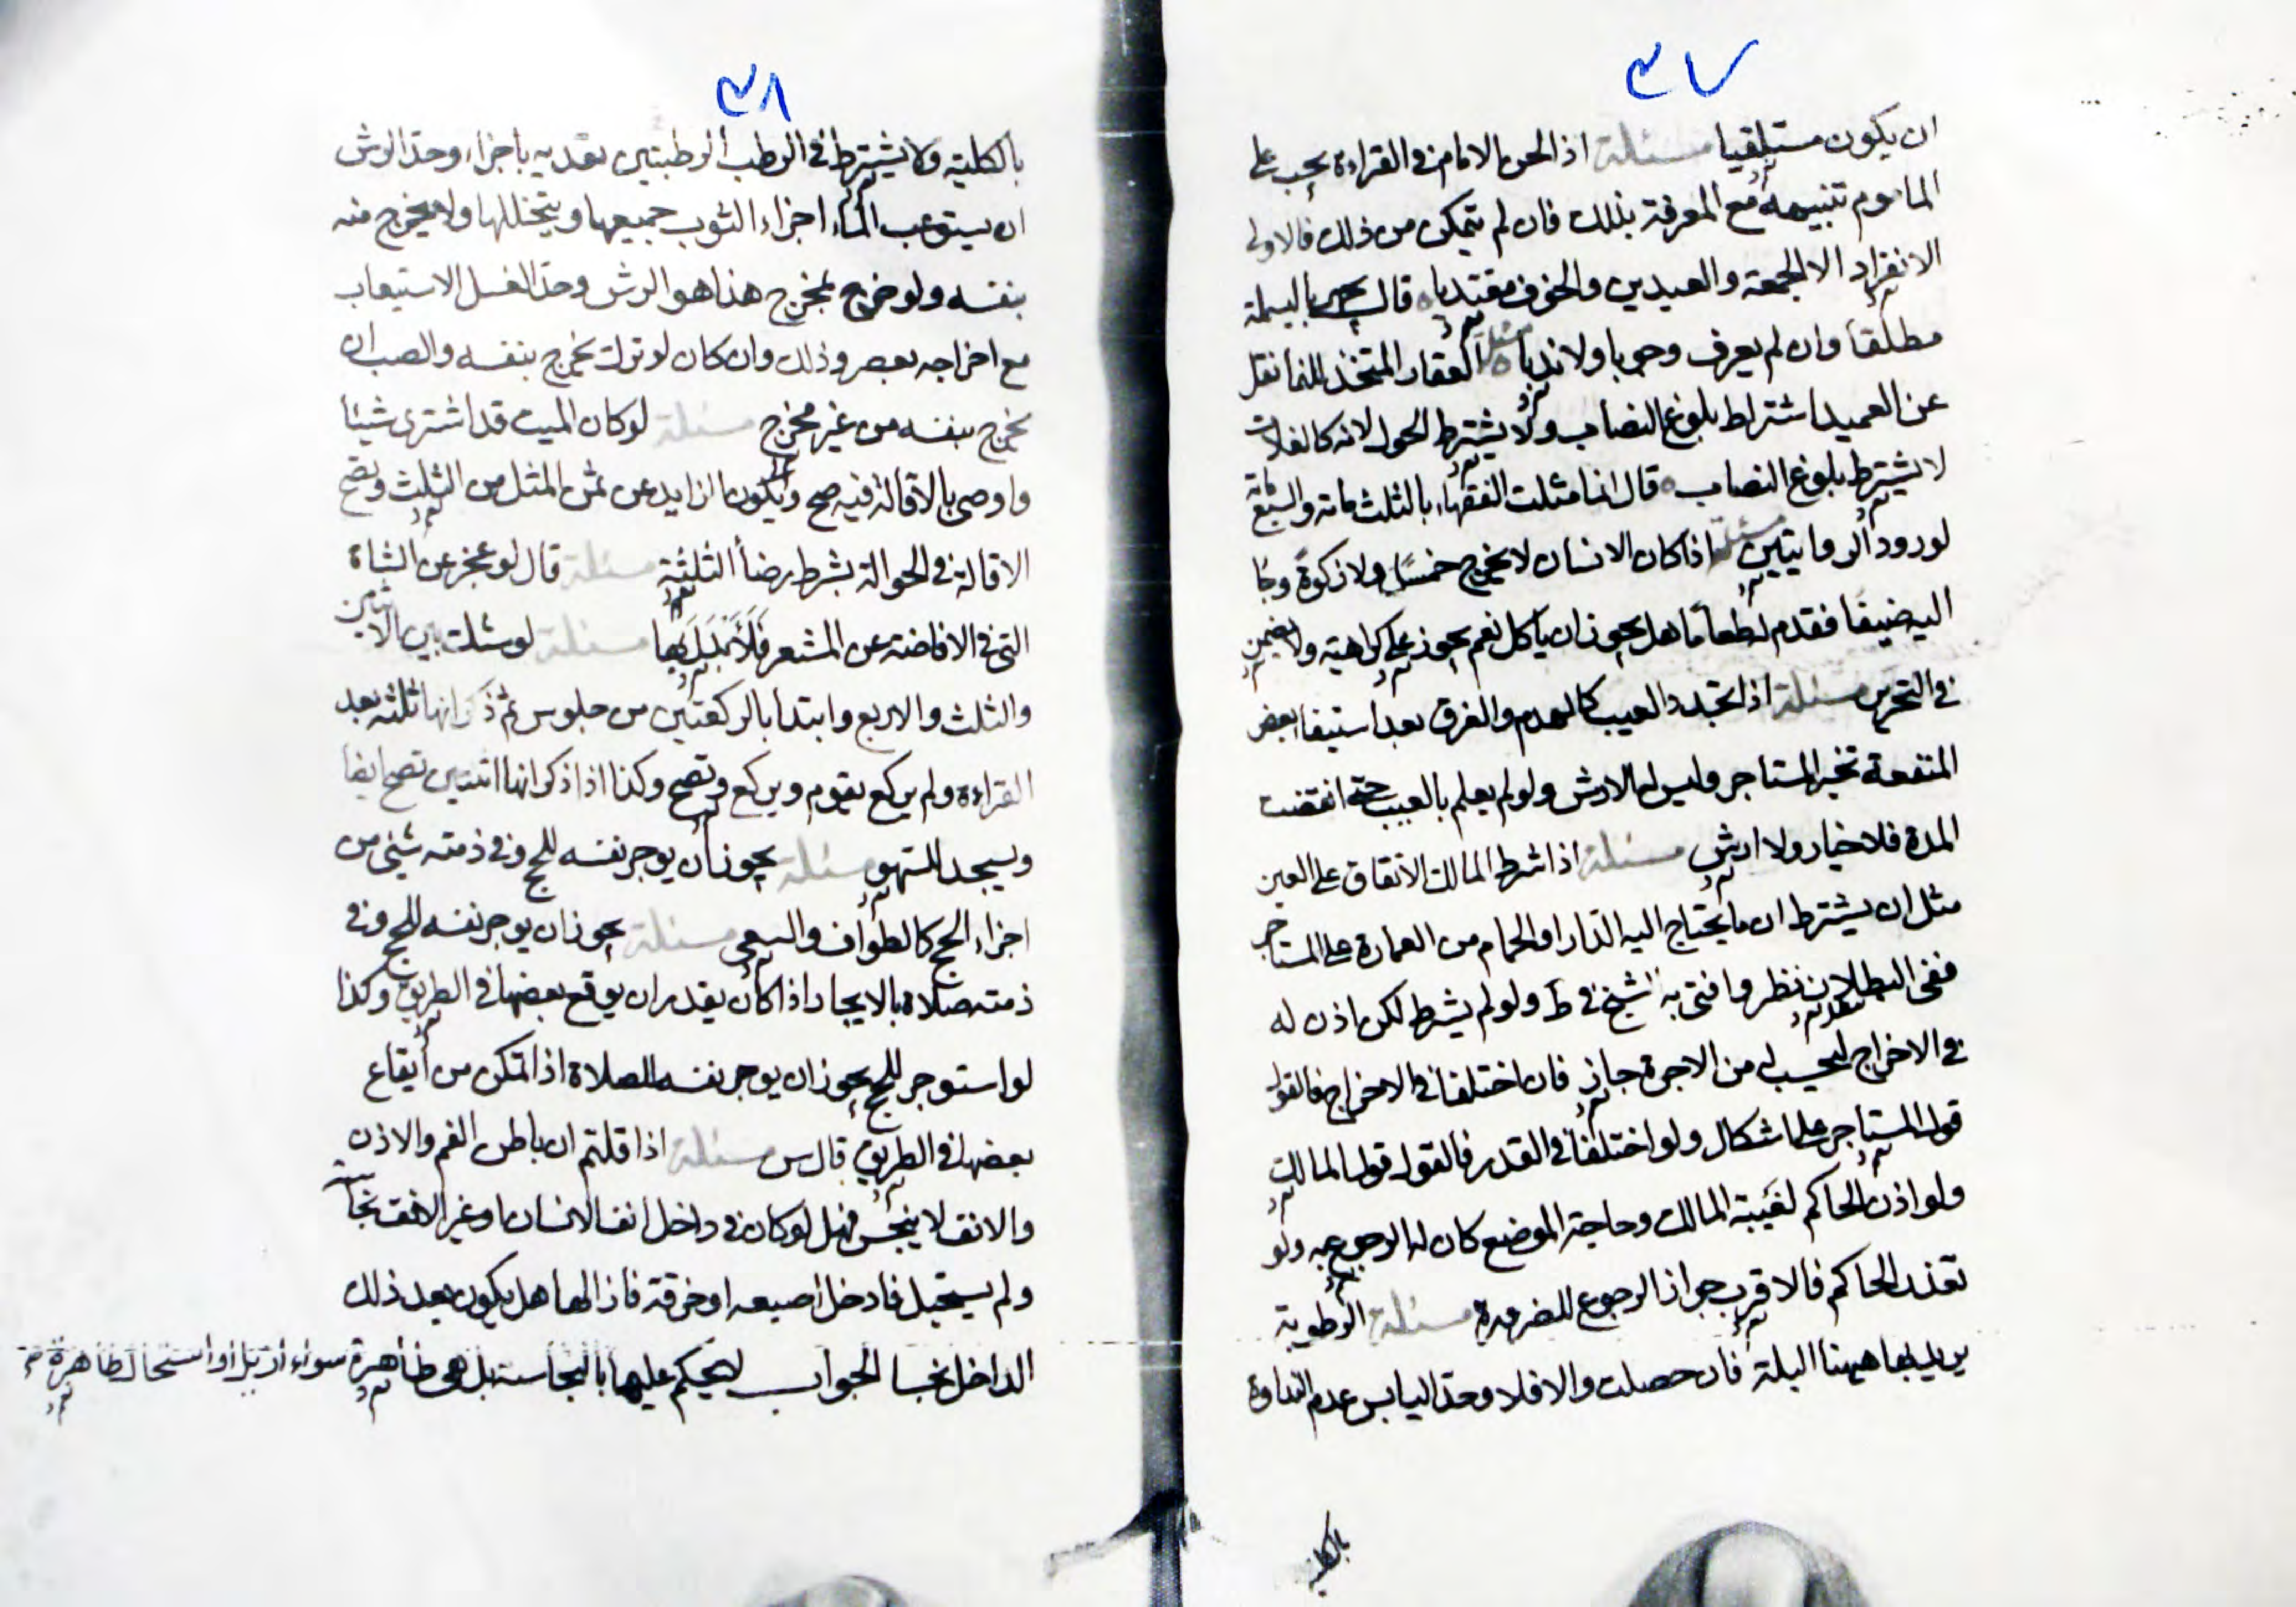 ٤٧
ان يكون مستلقيا مسئلة اذا لحن الامام في القراءة يجب على
الماموم تنبيهه مع المعرفة بذلك فان لم يتمكن من ذلك فالاولى
الانفراد الا الجمعة والعيدين والخوف مقتديا قال يجهر بالبسملة
مطلقا وان لم يعرف وجوبا ولا ندبا مسئلة العقار المتخذ للنما نقل
عن العميد اشتراط بلوغ النصاب ولا يشترط الحول لانه كالغلات
لا يشترط بلوغ النصاب قال انما مثلت الفقهاء بالثلث مائة والسبع مائة
لورود الروايتين مسئلة اذا كان الانسان لا يخرج خمسا ولا زكوة وجا
اليه ضيفا فقدم له طعاما هل يجوز ان ياكل نعم يجوز على كراهية ولا يضمن
في التحريم مسئلة اذا تجدد العيب كالهدم والغرق بعد استيفا بعض
المنفعة تخير المستاجر وليس له الارش ولو لم يعلم بالعيب حتى انقضت
المدة فلا خيار ولا ارش مسئلة اذا شرط المالك الانفاق على العين
مثل ان يشترط ان ما يحتاج اليه الدار او الحمام من العمارة على المستاجر
ففي البطلان نظر وافتى به الشيخ في ط ولو لم يشرط لكن اذن له
في الاخراج ليحسب له من الاجرة جاز فان اختلفا في الاخراج فالقول
قول المستاجر على اشكال ولو اختلفا في القدر فالقول قول المالك
ولو اذن الحاكم لغيبة المالك وحاجة الموضع كان له الرجوع به ولو
تعذر الحاكم فالاقرب جواز الرجوع للضرورة مسئلة الرطوبة
يريد بها هيهنا البلة فان حصلت والا فلا وحد اليابس عدم النداوة
بالكلية
٤٨
بالكلية ولا يشترط في الرطب الرطبتين تعديه باجزاء وحد الرش
ان يستوعب الماء اجزاء الثوب جميعها ويتخللها ولا يخرج منه
بنفسه ولو خرج بمخرج هذا هو الرش وحد الغسل الاستيعاب
مع اخراجه بعصر وذلك وان كان لو ترك يخرج بنفسه والصب ان
يخرج بنفسه من غير مخرج مسئلة لو كان الميت قد اشترى شيئا
واوصى بالاقالة فيه صح ويكون الزايد عن ثمن المثل من الثلث وتصح
الاقالة في الحوالة بشرط رضا الثلثة مسئلة قال لو عجز عن الشاة
التي في الافاضة عن المشعر فلا بدل لها مسئلة لو شك بين الاثنين
والثلث والاربع وابتدا بالركعتين من جلوس ثم ذكر انها ثلثة بعد
القراءة ولم يركع يقوم ويركع وتصح وكذا اذا ذكر انها اثنتين تصح ايضا
ويسجد للسهو مسئلة يجوز ان يوجر نفسه للحج وفي ذمته شيئ من
اجزاء الحج كالطواف والسعي مسئلة يجوز ان يوجر نفسه للحج وفي
ذمته صلاة بالايجار اذا كان يقدر ان يوقع بعضها في الطريق وكذا
لو استوجر للحج يجوز ان يوجر نفسه للصلاة اذا تمكن من ايقاع
بعضها في الطريق قال س مسئلة اذا قلتم ان باطن الفم والاذن
والانف لا ينجس فهل لو كان في داخل انف الانسان او غير الانف نجاسة
ولم يستحيل فادخل اصبعه او خرقة فازالها هل يكون بعد ذلك
الداخل نجسا الجواب لا يحكم عليها بالنجاسة بل هي طاهرة سواء ازيل او استحال طاهرة